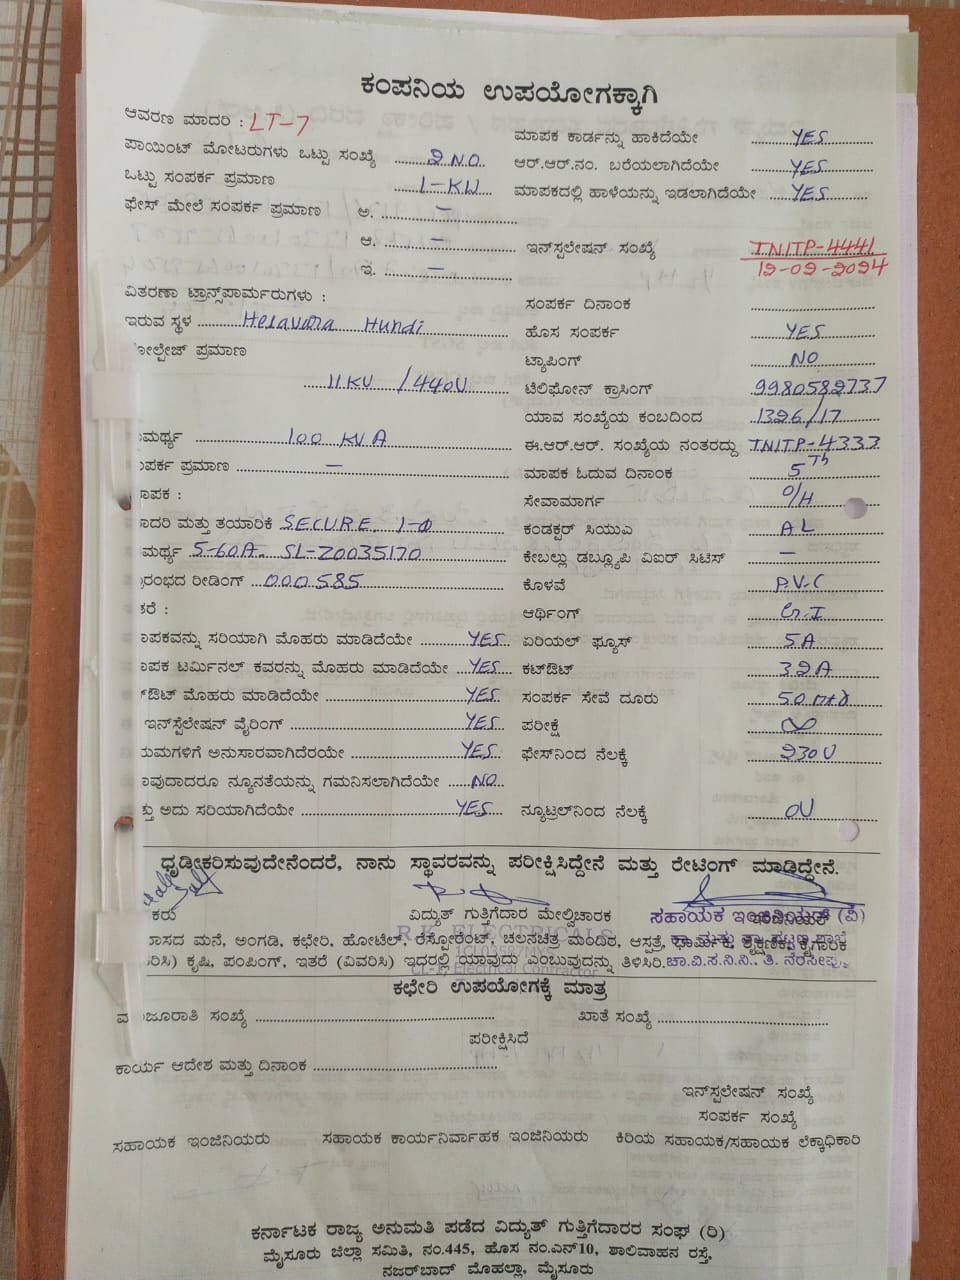 ಕಂಪನಿಯ ಉಪಯೋಗಕ್ಕಾಗಿ
ಆವರಣ ಮಾದರಿ : LT-7
ಪಾಯಿಂಟ್ ಮೋಟರುಗಳು ಒಟ್ಟು ಸಂಖ್ಯೆ 2 NO
ಒಟ್ಟು ಸಂಪರ್ಕ ಪ್ರಮಾಣ 1-KW
ಫೇಸ್ ಮೇಲೆ ಸಂಪರ್ಕ ಪ್ರಮಾಣ ಅ. —
ಆ. —
ಇ. —
ವಿತರಣಾ ಟ್ರಾನ್ಸ್‌ಪಾರ್ಮರುಗಳು :
ಇರುವ ಸ್ಥಳ Helavara Hundi
ೋಲ್ಟೇಜ್ ಪ್ರಮಾಣ
11KV / 440V
ಮರ್ಥ್ಯ 100 KVA
ಪರ್ಕ ಪ್ರಮಾಣ —
ಾಪಕ :
ಾದರಿ ಮತ್ತು ತಯಾರಿಕೆ SECURE 1-Φ
ಮರ್ಥ್ಯ 5-60A. SL-Z0035170
ರಂಭದ ರೀಡಿಂಗ್ 000585
ಕರೆ :
ಾಪಕವನ್ನು ಸರಿಯಾಗಿ ಮೊಹರು ಮಾಡಿದೆಯೇ YES
ಾಪಕ ಟರ್ಮಿನಲ್ ಕವರನ್ನು ಮೊಹರು ಮಾಡಿದೆಯೇ YES
ಔಟ್ ಮೊಹರು ಮಾಡಿದೆಯೇ YES
ಇನ್‌ಸ್ಟಲೇಷನ್ ವೈರಿಂಗ್ YES
ಯಮಗಳಿಗೆ ಅನುಸಾರವಾಗಿದೆರಯೇ YES
ಾವುದಾದರೂ ನ್ಯೂನತೆಯನ್ನು ಗಮನಿಸಲಾಗಿದೆಯೇ NO
ತ್ತು ಅದು ಸರಿಯಾಗಿದೆಯೇ YES
ಮಾಪಕ ಕಾರ್ಡನ್ನು ಹಾಕಿದೆಯೇ YES
ಆರ್.ಆರ್.ನಂ. ಬರೆಯಲಾಗಿದೆಯೇ YES
ಮಾಪಕದಲ್ಲಿ ಹಾಳೆಯನ್ನು ಇಡಲಾಗಿದೆಯೇ YES
ಇನ್‌ಸ್ಪಲೇಷನ್ ಸಂಖ್ಯೆ TNITP-4441
12-02-2024
ಸಂಪರ್ಕ ದಿನಾಂಕ
ಹೊಸ ಸಂಪರ್ಕ YES
ಟ್ಯಾಪಿಂಗ್ NO
ಟೆಲಿಫೋನ್ ಕ್ರಾಸಿಂಗ್ 9980582737
ಯಾವ ಸಂಖ್ಯೆಯ ಕಂಬದಿಂದ 1326/17
ಈ.ಆರ್.ಆರ್. ಸಂಖ್ಯೆಯ ನಂತರದ್ದು TNITP-4333
ಮಾಪಕ ಓದುವ ದಿನಾಂಕ 5th
ಸೇವಾಮಾರ್ಗ O/H
ಕಂಡಕ್ಟರ್ ಸಿಯುಎ AL
ಕೇಬಲ್ಲು ಡಬ್ಲ್ಯೂಪಿ ವಿಐರ್ ಸಿಟಿಸ್ —
ಕೊಳವೆ P.V.C
ಆರ್ಥಿಂಗ್ G.I
ಏರಿಯಲ್ ಫ್ಯೂಸ್ 5A
ಕಟ್‌ಔಟ್ 32A
ಸಂಪರ್ಕ ಸೇವೆ ದೂರು 50 mtr
ಪರೀಕ್ಷೆ
ಫೇಸ್‌ನಿಂದ ನೆಲಕ್ಕೆ 230V
ನ್ಯೂಟ್ರಲ್‌ನಿಂದ ನೆಲಕ್ಕೆ 0V
ಧೃಡೀಕರಿಸುವುದೇನೆಂದರೆ, ನಾನು ಸ್ಥಾವರವನ್ನು ಪರೀಕ್ಷಿಸಿದ್ದೇನೆ ಮತ್ತು ರೇಟಿಂಗ್ ಮಾಡಿದ್ದೇನೆ.
ಕರು ವಿದ್ಯುತ್ ಗುತ್ತಿಗೆದಾರ ಮೇಲ್ವಿಚಾರಕ ಸಹಾಯಕ ಇಂಜಿನಿಯರ್ (ವಿ)
R.K. ELECTRICALS
ಾಸದ ಮನೆ, ಅಂಗಡಿ, ಕಛೇರಿ, ಹೋಟೆಲ್, ರೆಸ್ಟೋರೆಂಟ್, ಚಲನಚಿತ್ರ ಮಂದಿರ, ಆಸ್ಪತ್ರೆ, ಧಾರ್ಮಿಕ, ಶೈಕ್ಷಣಿಕ, ಕೈಗಾರಿಕ
ರಿಸಿ) ಕೃಷಿ, ಪಂಪಿಂಗ್, ಇತರೆ (ವಿವರಿಸಿ) ಇದರಲ್ಲಿ ಯಾವುದು ಎಂಬುವುದನ್ನು ತಿಳಿಸಿರಿ. ಚಾ.ವಿ.ಸ.ನಿ.ನಿ., ತಿ. ನರಸೀಪು
CL-1, Electrical Contractor
ಕಛೇರಿ ಉಪಯೋಗಕ್ಕೆ ಮಾತ್ರ
ಜೂರಾತಿ ಸಂಖ್ಯೆ ಖಾತೆ ಸಂಖ್ಯೆ
ಪರೀಕ್ಷಿಸಿದೆ
ಕಾರ್ಯ ಆದೇಶ ಮತ್ತು ದಿನಾಂಕ
ಇನ್‌ಸ್ಪಲೇಷನ್ ಸಂಖ್ಯೆ
ಸಂಪರ್ಕ ಸಂಖ್ಯೆ
ಸಹಾಯಕ ಇಂಜಿನಿಯರು ಸಹಾಯಕ ಕಾರ್ಯನಿರ್ವಾಹಕ ಇಂಜಿನಿಯರು ಕಿರಿಯ ಸಹಾಯಕ/ಸಹಾಯಕ ಲೆಕ್ಕಾಧಿಕಾರಿ
ಕರ್ನಾಟಕ ರಾಜ್ಯ ಅನುಮತಿ ಪಡೆದ ವಿದ್ಯುತ್ ಗುತ್ತಿಗೆದಾರರ ಸಂಘ (ರಿ)
ಮೈಸೂರು ಜಿಲ್ಲಾ ಸಮಿತಿ, ನಂ.445, ಹೊಸ ನಂ.ಎನ್10, ಶಾಲಿವಾಹನ ರಸ್ತೆ,
ನಜರ್‌ಬಾದ್ ಮೊಹಲ್ಲಾ, ಮೈಸೂರು